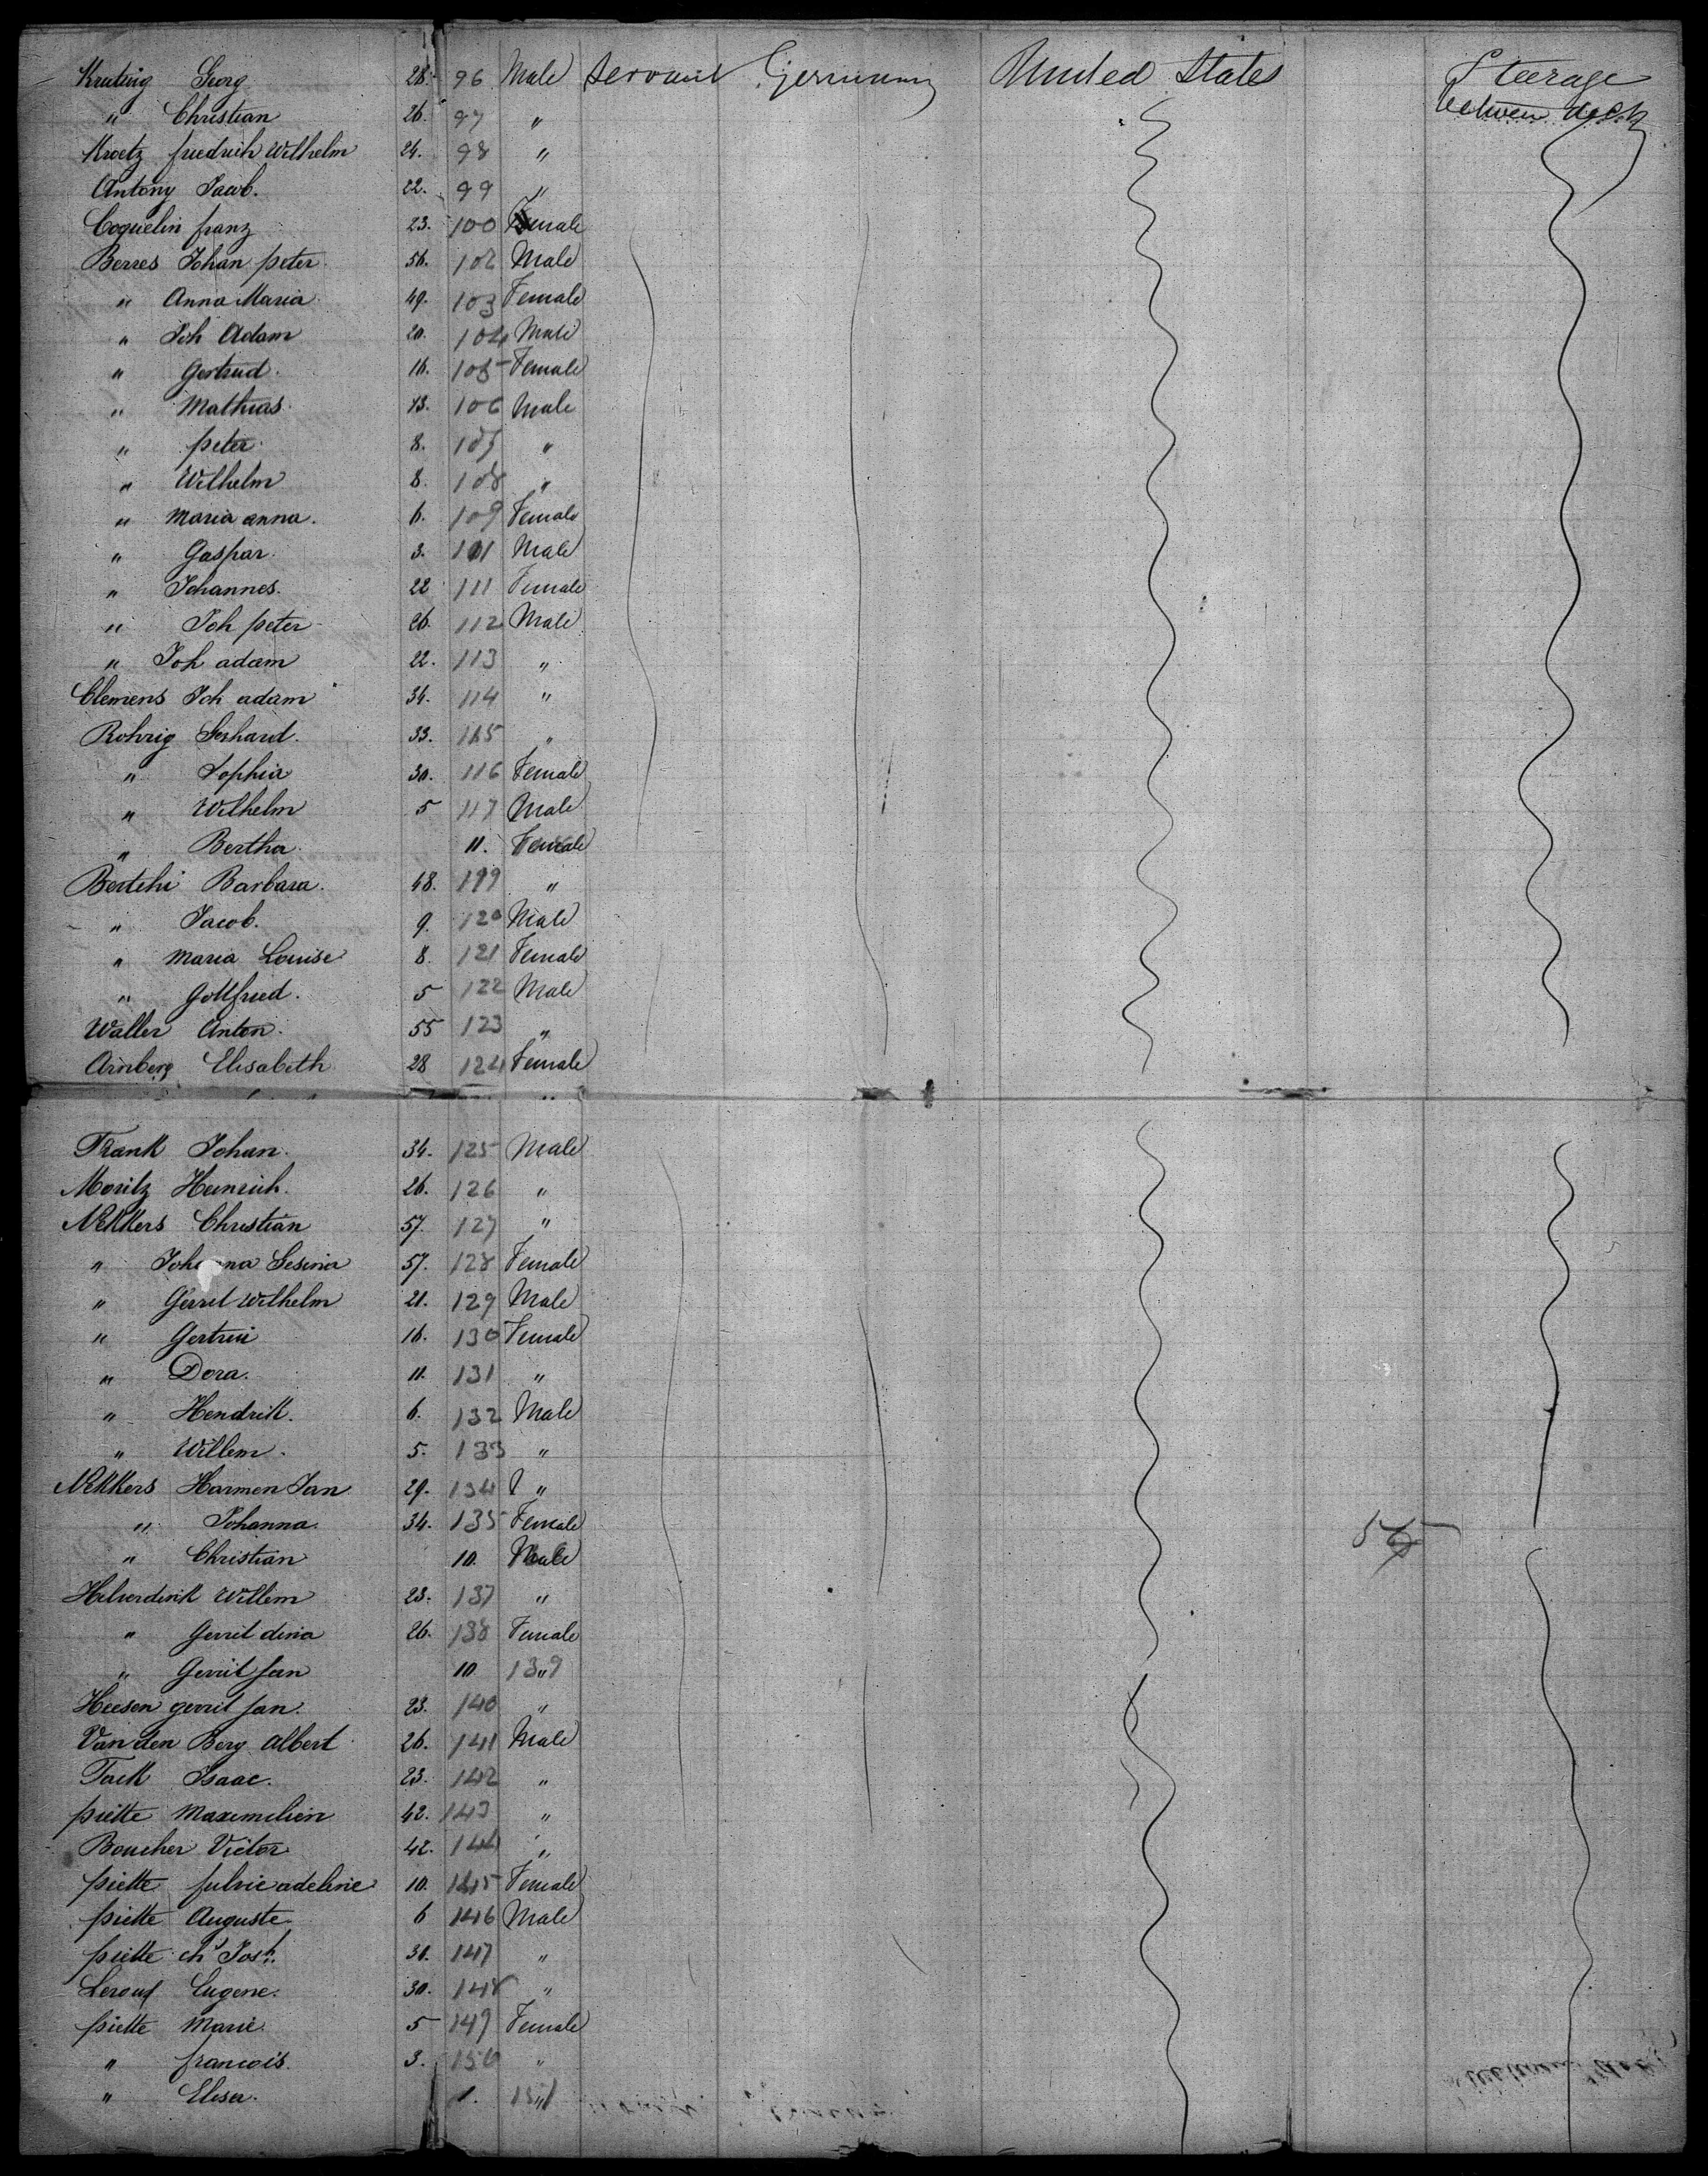 Kruting Georg 28. 96 Male Servant Germany United States Steerage
" Christian 26. 97 " between deck
Kroetz friedrich Wilhelm 24. 98 "
Antony Jacob. 22. 99 "
Coquelin franz 23. 100 Female
Berres Johan peter 56. 102 Male
" Anna Maria 49. 103 Female
" Joh Adam 20. 104 Male
" Gertrud. 16. 105 Female
" Mathias. 13. 106 Male
" peter 8. 107 "
" Wilhelm 8. 108 "
" Maria anna. 6. 109 Female
" Gaspar. 3. 101 Male
" Johannes. 22 111 Female
" Joh peter 26. 112 Male
" Joh adam 22. 113 "
Clemens Joh adam 34. 114 "
Rohrig Gerhard. 33. 115 "
" Sophia 30. 116 Female
" Wilhelm 5 117 Male
" Bertha 11. Female
Bertchi Barbara. 48. 119 "
" Jacob. 9. 120 Male
" Maria Louise 8. 121 Female
" Gottfried. 5 122 Male
Waller Anton. 55 123 "
Arnberg Elisabeth 28 124 Female
Frank Johan. 34. 125 Male
Moritz Heinrich. 26. 126 "
Nekkers Christian 57. 127 "
" Johanna Gesina 57. 128 Female
" Gerret Wilhelm 21. 129 Male
" Gertrui 16. 130 Female
" Dora. 11. 131 "
" Hendrik. 6. 132 Male
" Willem. 5. 133 "
Nekkers Harmen Jan 29. 134 "
" Johanna. 34. 135 Female
" Christian 10. Male
Hilverdink Willem 23. 137 "
" Gerrit dina 26. 138 Female
" Gerrit Jan 10 139 "
Heesen gerrit Jan. 23. 140 "
Van den Berg Albert 26. 141 Male
Tack Isaac. 23. 142 "
piette Maximilien 42. 143 "
Boucher Victor 42. 144 "
piette julvie adeline 10. 145 Female
piette Auguste. 6 146 Male
piette chs Josh. 31. 147 "
Leroux Eugene. 30. 148 "
piette Marie 5 149 Female
" francois. 3. 150 "
" Elisa. 1. 151 "